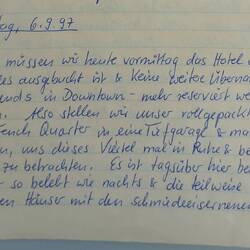 tag, 6.9.97
müssen wir heute vormittag das Hotel
es ausgebucht ist & keine weitere Übernac
ends in Downtown - mehr reserviert we
. Also stellen wir unser vollgepackt
ench Quarter in eine Tiefgarage & ma
en, uns dieses Viertel mal in Ruhe & be
zu betrachten. Es ist tagsüber hier be
so belebt wie nachts & die teilweise
en Häuser mit den schmiedeeisernen